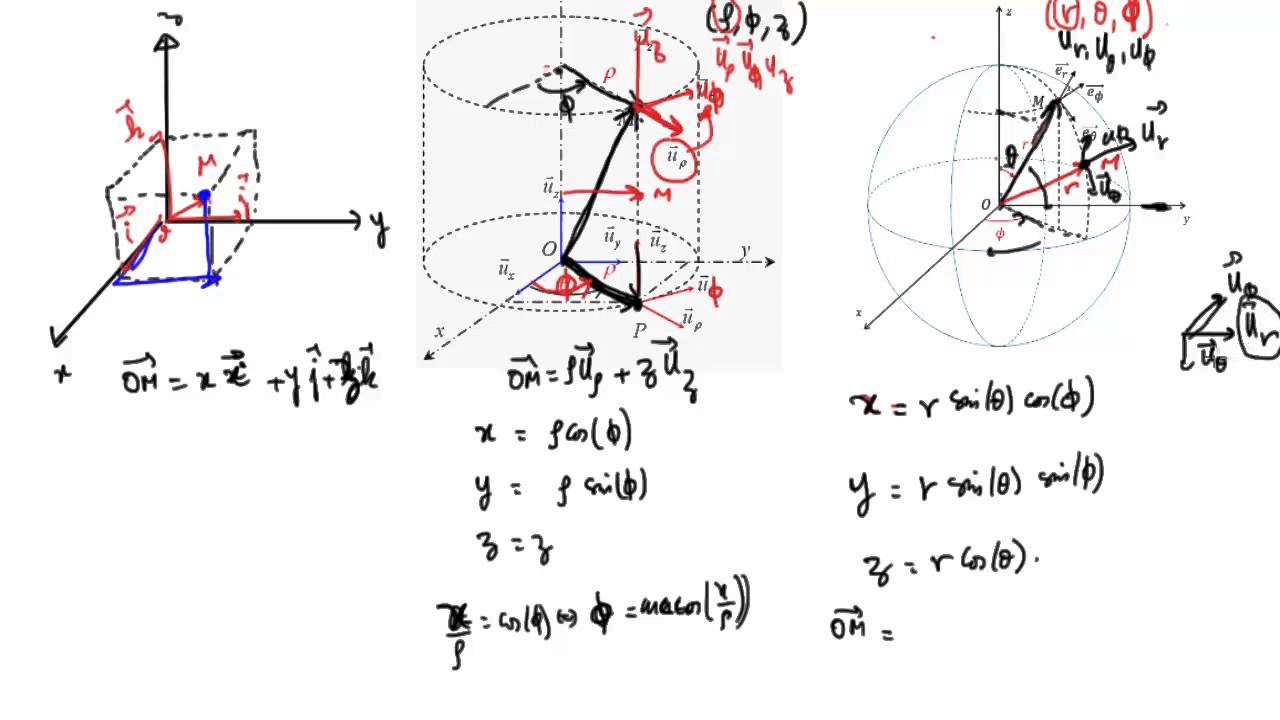 z
k
M
j
i
o
y
x
OM = x i + y j + z k
(ρ, ϕ, z)
u_z
u_ρ u_ϕ u_z
z
ρ
ϕ
u_ϕ
M
u_ρ
u_z
M
O
u_y
u_z
y
u_x
ϕ
ρ
u_ϕ
x
P
u_ρ
OM = ρ u_ρ + z u_z
x = ρ cos(ϕ)
y = ρ sin(ϕ)
z = z
x/ρ = cos(ϕ) ⇔ ϕ = arccos(x/ρ)
z
(r, θ, ϕ)
u_r, u_θ, u_ϕ
e_r
M
e_ϕ
e_θ
u_r
θ
r
M
r
u_θ
O
y
ϕ
x
u_ϕ
u_r
u_θ
x = r sin(θ) cos(ϕ)
y = r sin(θ) sin(ϕ)
z = r cos(θ).
OM =